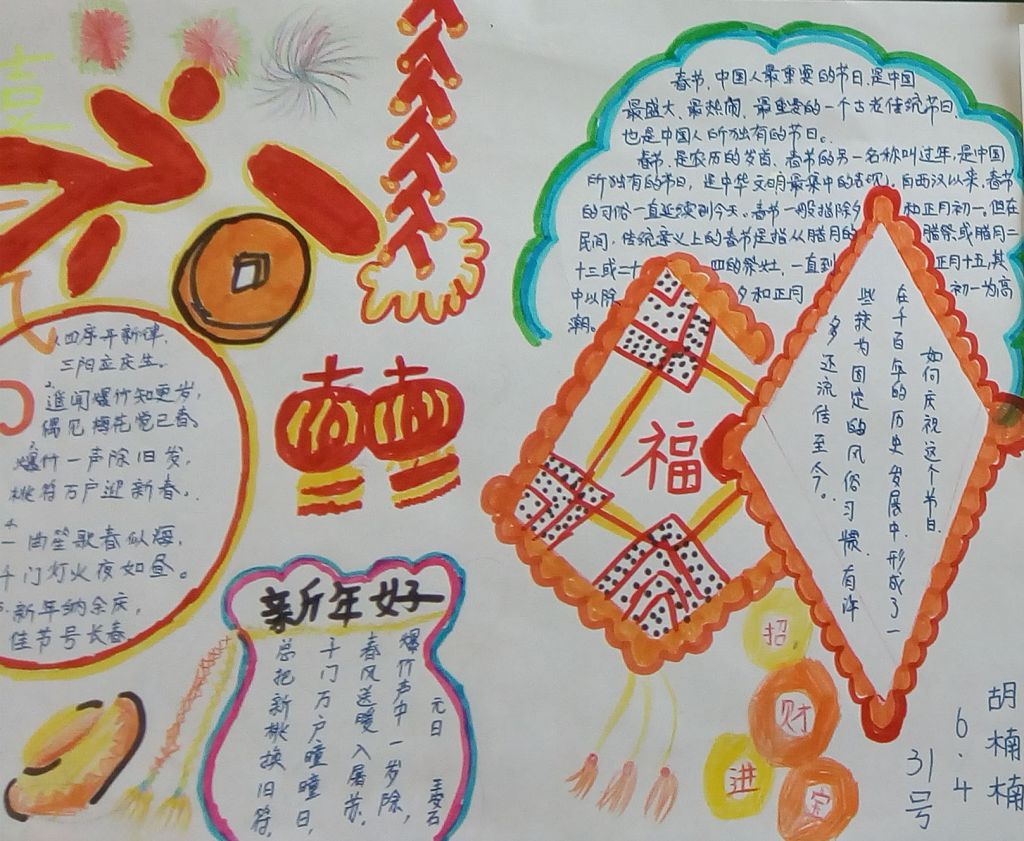 喜
四序开新律,
三阳应庆生。
2.遥闻爆竹知更岁,
偶见梅花觉已春。
3.爆竹一声除旧岁,
桃符万户迎新春。
4.一曲笙歌春似海,
千门灯火夜如昼。
5.新年纳余庆,
佳节号长春
新年好
元日
爆竹声中一岁除,
春风送暖入屠苏。
千门万户曈曈日,
总把新桃换旧符。
春节,中国人最重要的节日,是中国
最盛大、最热闹、最重要的一个古老传统节日,
也是中国人所独有的节日。
春节,是农历的岁首,春节的另一名称叫过年,是中国
所独有的节日,是中华文明最集中的表现。自西汉以来,春节
的习俗一直延续到今天。春节一般指除夕和正月初一。但在
民间,传统意义上的春节是指从腊月的腊祭或腊月二
十三或二十四的祭灶,一直到正月十五,其
中以除夕和正月初一为高
潮。
福
如何庆祝这个节日,
在千百年的历史发展中,形成了一
些较为固定的风俗习惯,有许
多还流传至今。
招
财
进
宝
胡楠楠
6.4
31号